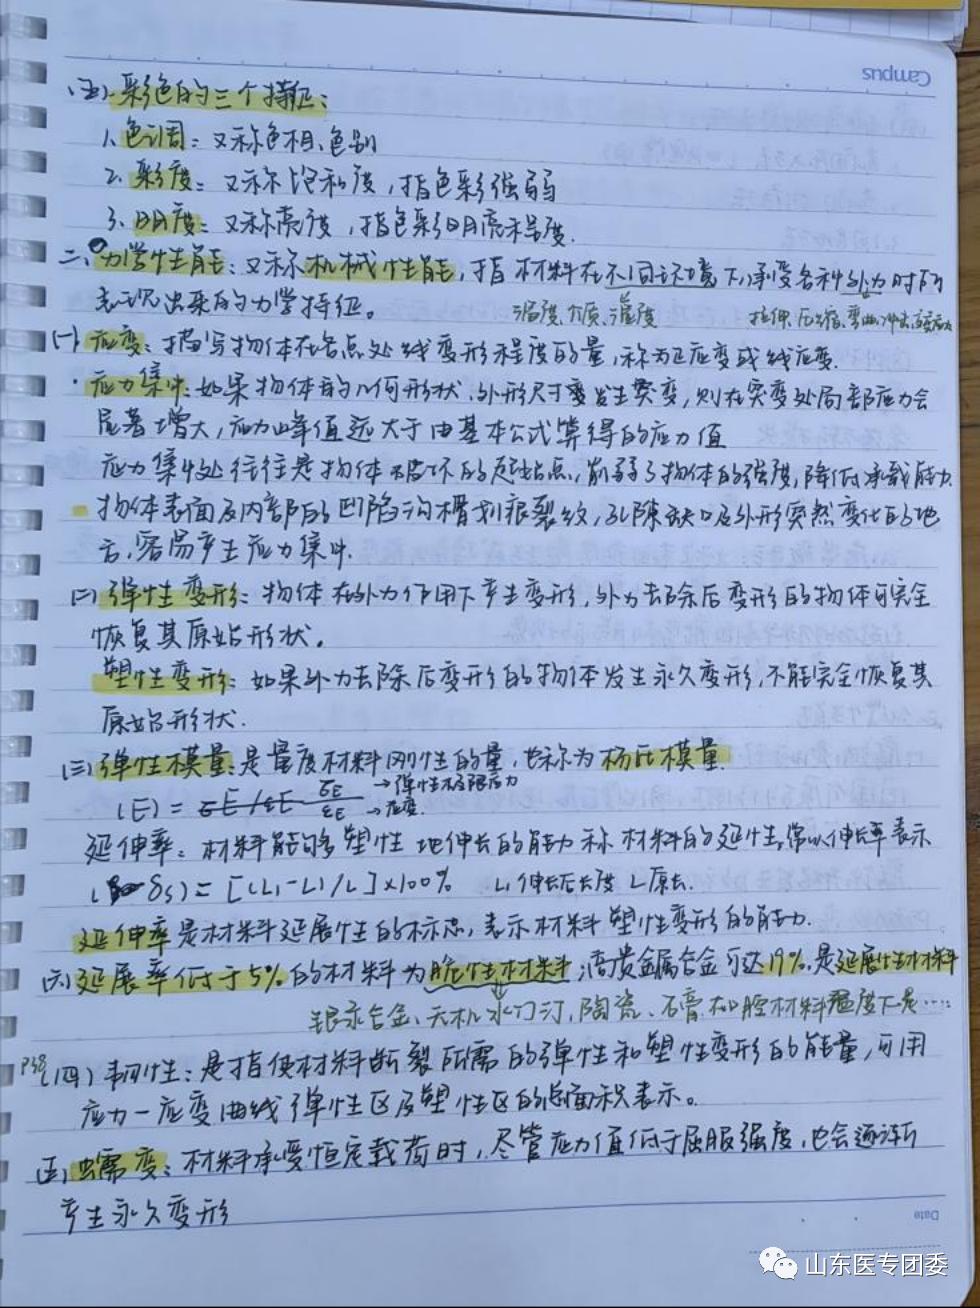 Campus
(五)、彩色的三个特征:
1、色调:又称色相、色别
2、彩度:又称饱和度,指色彩强弱
3、明度:又称亮度,指色彩明亮程度.
二、力学性能:又称机械性能,指材料在不同环境下,承受各种外力时所
表现出来的力学特征。 温度、介质、湿度 拉伸、压缩、弯曲、冲击、
(一)应变:描写物体在各点处线变形程度的量,称为正应变或线应变.
·应力集中:如果物体的几何形状、外形尺寸发生突变,则在突变处局部应力会
显著增大,应力峰值远大于由基本公式算得的应力值
应力集中处往往是物体破坏的起始点,削弱了物体的强度,降低承载能力
物体表面及内部的凹陷沟槽划痕裂纹,孔隙缺口及外形突然变化的地
方,容易产生应力集中.
(二)弹性变形:物体在外力作用下产生变形,外力去除后变形的物体可完全
恢复其原始形状。
塑性变形:如果外力去除后变形的物体发生永久变形,不能完全恢复其
原始形状.
(三)弹性模量:是量度材料刚性的量,也称为杨氏模量.
(E) = σE/εE →弹性极限应力
→应变.
延伸率:材料能够塑性地伸长的能力称材料的延性,常以伸长率表示
(δs) = [(L₁-L)/L]×100% L₁伸长后长度 L原长.
延伸率是材料延展性的标志,表示材料塑性变形的能力.
(六)延展率低于5%的材料为脆性材料,高贵金属合金可达19%.是延展性材料
银汞合金、无机水门汀,陶瓷、石膏和腔材料温度下是……
P38(四)韧性:是指使材料断裂所需的弹性和塑性变形的能量,可用
应力一应变曲线弹性区及塑性区的总面积表示。
(五)蠕变:材料承受恒定载荷时,尽管应力值低于屈服强度,也会逐渐
产生永久变形
Date
山东医专团委